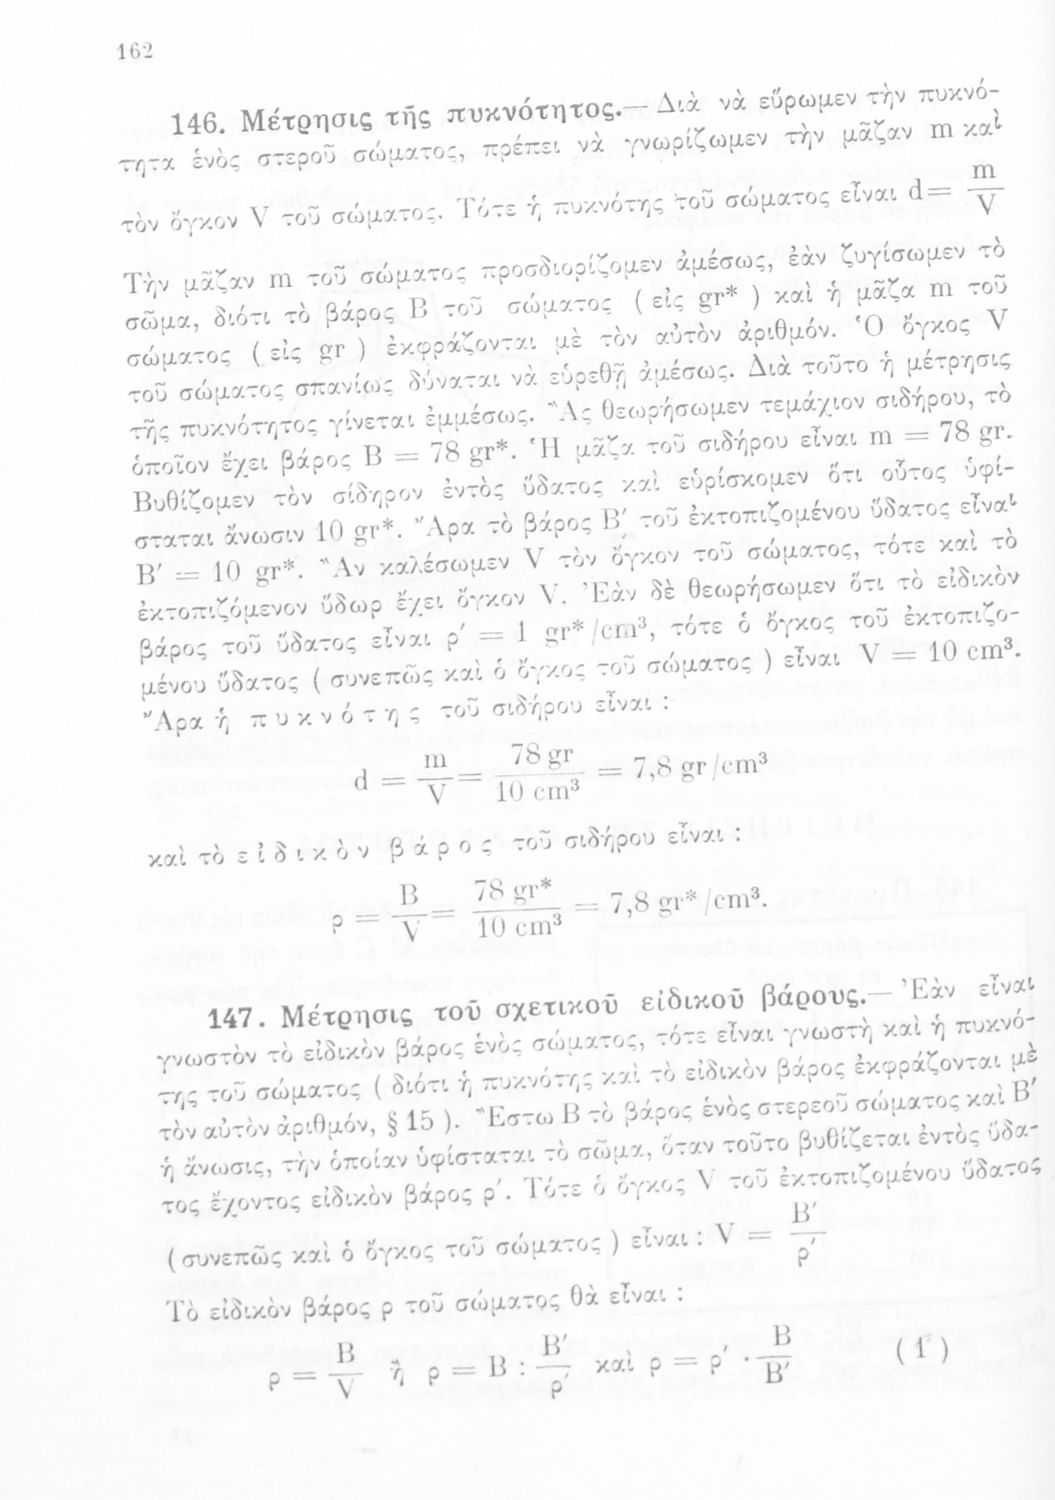 162
146. Μέτρησις τῆς πυκνότητος.— Διὰ νὰ εὕρωμεν τὴν πυκνό-
τητα ἑνὸς στεροῦ σώματος, πρέπει νὰ γνωρίζωμεν τὴν μᾶζαν m καὶ
τὸν ὄγκον V τοῦ σώματος. Τότε ἡ πυκνότης τοῦ σώματος εἶναι d = m/V
Τὴν μᾶζαν m τοῦ σώματος προσδιορίζομεν ἀμέσως, ἐὰν ζυγίσωμεν τὸ
σῶμα, διότι τὸ βάρος B τοῦ σώματος ( εἰς gr* ) καὶ ἡ μᾶζα m τοῦ
σώματος ( εἰς gr ) ἐκφράζονται μὲ τὸν αὐτὸν ἀριθμόν. Ὁ ὄγκος V
τοῦ σώματος σπανίως δύναται νὰ εὑρεθῇ ἀμέσως. Διὰ τοῦτο ἡ μέτρησις
τῆς πυκνότητος γίνεται ἐμμέσως. Ἂς θεωρήσωμεν τεμάχιον σιδήρου, τὸ
ὁποῖον ἔχει βάρος B = 78 gr*. Ἡ μᾶζα τοῦ σιδήρου εἶναι m = 78 gr.
Βυθίζομεν τὸν σίδηρον ἐντὸς ὕδατος καὶ εὑρίσκομεν ὅτι οὗτος ὑφί-
σταται ἄνωσιν 10 gr*. Ἄρα τὸ βάρος B′ τοῦ ἐκτοπιζομένου ὕδατος εἶναι
B′ = 10 gr*. Ἂν καλέσωμεν V τὸν ὄγκον τοῦ σώματος, τότε καὶ τὸ
ἐκτοπιζόμενον ὕδωρ ἔχει ὄγκον V. Ἐὰν δὲ θεωρήσωμεν ὅτι τὸ εἰδικὸν
βάρος τοῦ ὕδατος εἶναι ρ′ = 1 gr*/cm³, τότε ὁ ὄγκος τοῦ ἐκτοπιζο-
μένου ὕδατος ( συνεπῶς καὶ ὁ ὄγκος τοῦ σώματος ) εἶναι V = 10 cm³.
Ἄρα ἡ πυκνότης τοῦ σιδήρου εἶναι :
d = m/V = 78 gr/10 cm³ = 7,8 gr/cm³
καὶ τὸ εἰδικὸν βάρος τοῦ σιδήρου εἶναι :
ρ = B/V = 78 gr*/10 cm³ = 7,8 gr*/cm³.
147. Μέτρησις τοῦ σχετικοῦ εἰδικοῦ βάρους.— Ἐὰν εἶναι
γνωστὸν τὸ εἰδικὸν βάρος ἑνὸς σώματος, τότε εἶναι γνωστὴ καὶ ἡ πυκνό-
της τοῦ σώματος ( διότι ἡ πυκνότης καὶ τὸ εἰδικὸν βάρος ἐκφράζονται μὲ
τὸν αὐτὸν ἀριθμόν, § 15 ). Ἔστω B τὸ βάρος ἑνὸς στερεοῦ σώματος καὶ B′
ἡ ἄνωσις, τὴν ὁποίαν ὑφίσταται τὸ σῶμα, ὅταν τοῦτο βυθίζεται ἐντὸς ὕδα-
τος ἔχοντος εἰδικὸν βάρος ρ′. Τότε ὁ ὄγκος V τοῦ ἐκτοπιζομένου ὕδατος
( συνεπῶς καὶ ὁ ὄγκος τοῦ σώματος ) εἶναι : V = B′/ρ′
Τὸ εἰδικὸν βάρος ρ τοῦ σώματος θὰ εἶναι :
ρ = B/V ἢ ρ = B : B′/ρ′ καὶ ρ = ρ′ · B/B′ (1)